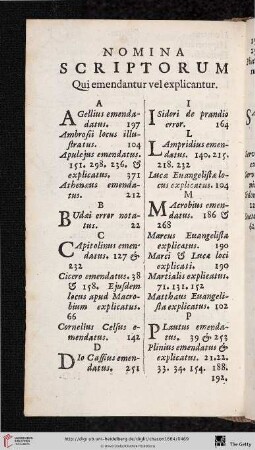 NOMINA
SCRIPTORUM
Qui emendantur vel explicantur.
A
A Gellius emenda-
datus. 197
Ambrosii locus illu-
stratus. 104
Apulejus emendatus.
151. 298. 236. &
explicatus. 371
Athenæus emenda-
tus. 212
B
BUdæi error nota-
tus. 22
C
CApitolinus emen-
datus. 127 &
232
Cicero emendatus. 38
& 158. Ejusdem
locus apud Macro-
bium explicatus.
66
Cornelius Celsus e-
mendatus. 142
D
DIo Cassius emen-
datus. 251
I
ISidori de prandio
error. 164
L
LAmpridius emen-
datus. 140. 215.
218. 232
Lucæ Euangelistæ lo-
cus explicatus. 104
M
MAcrobius emen-
datus. 186 &
268
Marcus Euangelista
explicatus. 190
Marci & Lucæ loci
explicati. 190
Martialis explicatus.
71. 131. 152
Matthæus Euangeli-
sta explicatus. 102
P
PLautus emenda-
tus. 39 & 253
Plinius emendatus &
explicatus. 21. 22.
33. 34. 154. 188.
192.
The Getty